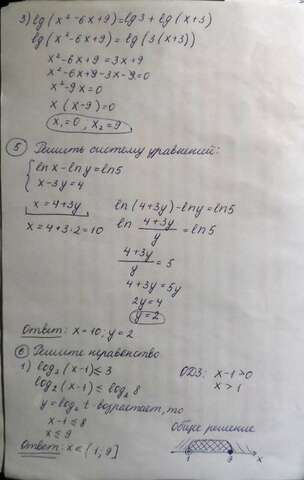 3) lg(x²-6x+9)=lg3+lg(x+3)
lg(x²-6x+9)=lg(3(x+3))
x²-6x+9=3x+9
x²-6x+9-3x-9=0
x²-9x=0
x(x-9)=0
x₁=0, x₂=9
5 Решить систему уравнений:
{ lnx-lny=ln5
x-3y=4
x=4+3y ln(4+3y)-lny=ln5
x=4+3·2=10 ln (4+3y)/y = ln5
(4+3y)/y = 5
4+3y=5y
2y=4
y=2
Ответ: x=10; y=2
6 Решите неравенство
1) log₂(x-1)≤3 ОДЗ: x-1>0
log₂(x-1)≤log₂8 x>1
y=log₂t-возрастает, то
x-1≤8
x≤9 Общее решение
Ответ: x∈(1;9] 1 9 x